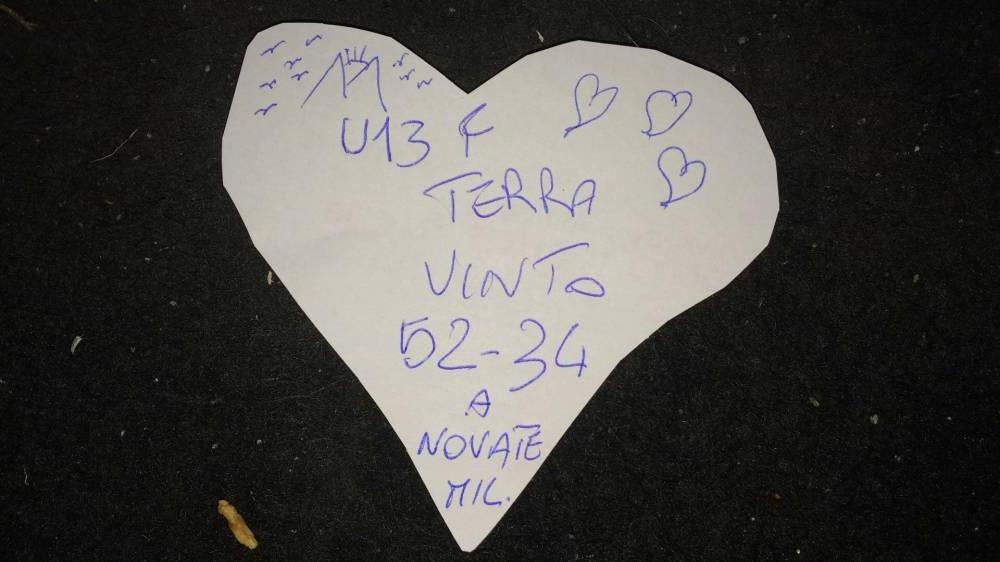 U13 F
TERRA
VINTO
52-34
A
NOVATE
MIL.